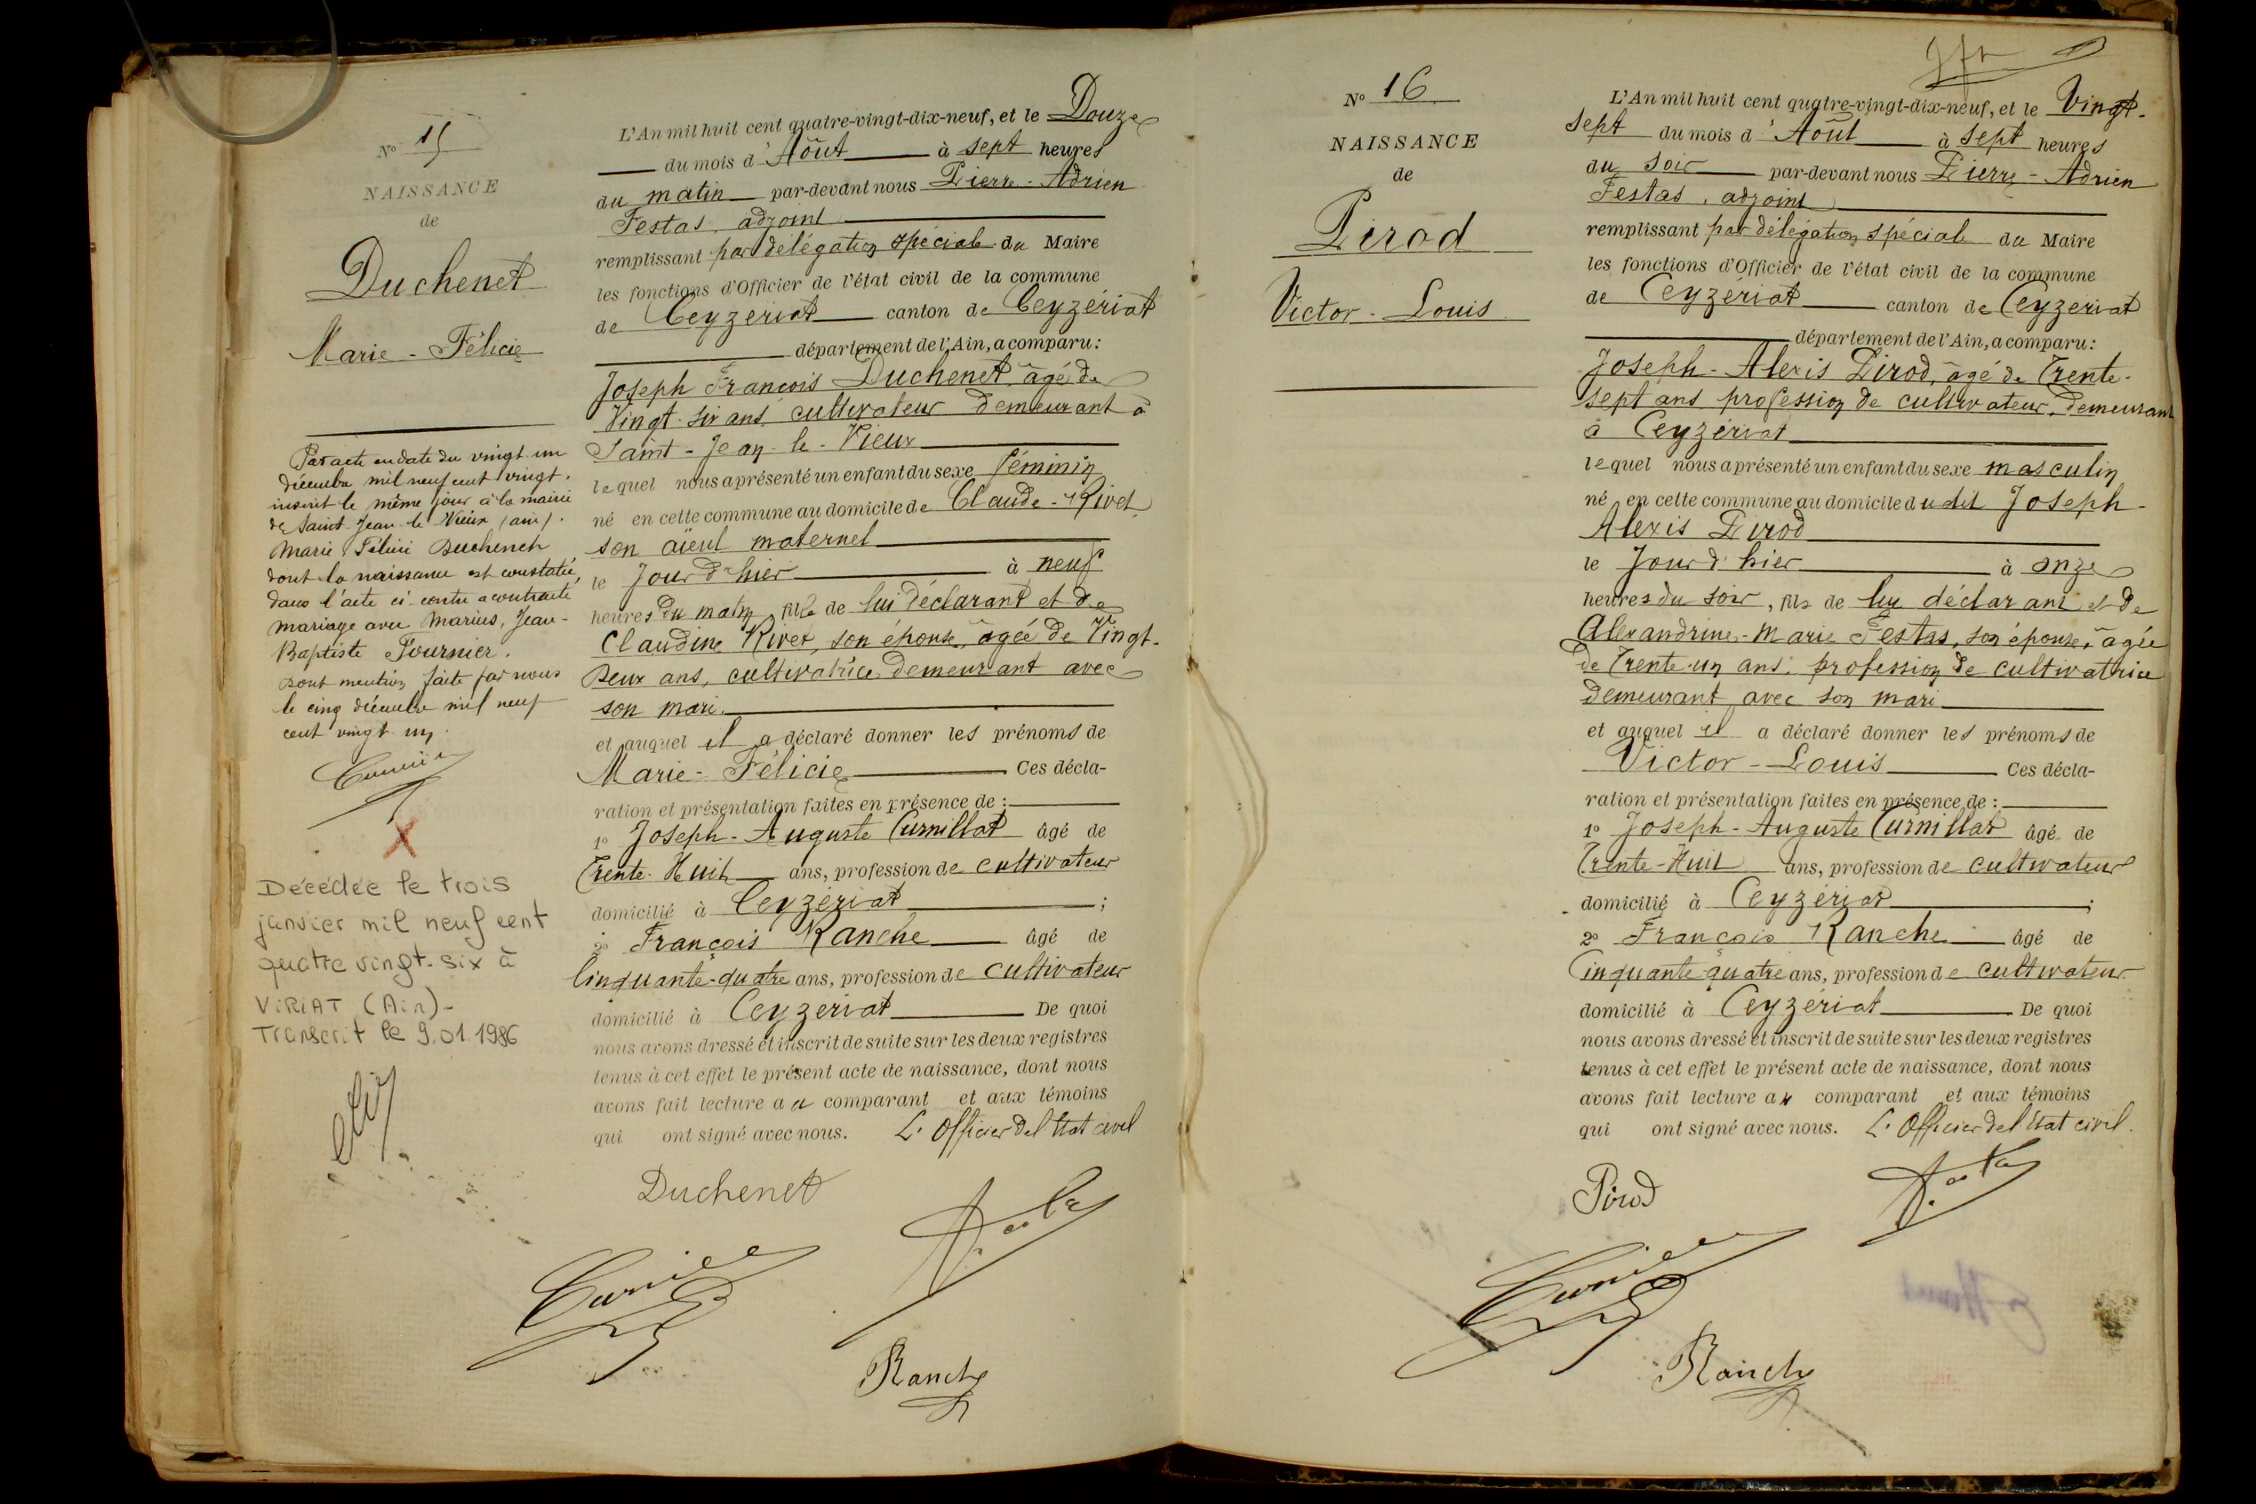 No 15
NAISSANCE
de
Duchenet
Marie-Félicie
Par acte en date du vingt un
décembre mil neuf cent vingt.
inscrit le même jour à la mairie
de Saint-Jean-le-Vieux (ain).
Marie Félicie Duchenet
dont la naissance est constatée,
dans l'acte ci-contre a contracté
mariage avec Marius, Jean-
Baptiste Fournier.
Dont mention faite par nous
le cinq décembre mil neuf
cent vingt un.
X
Décédée le trois
janvier mil neuf cent
quatre vingt-six à
VIRIAT (Ain)-
Transcrit le 9.01.1986
L'An mil huit cent quatre-vingt-dix-neuf, et le Douze
du mois d'Août à sept heures
du matin par-devant nous Pierre-Adrien
Festas, adjoint
remplissant par délégation spéciale du Maire
les fonctions d'Officier de l'état civil de la commune
de Ceyzériat canton de Ceyzériat
département de l'Ain, a comparu:
Joseph François Duchenet, âgé de
Vingt-six ans, cultivateur demeurant à
Saint-Jean-le-Vieux
lequel nous a présenté un enfant du sexe féminin
né en cette commune au domicile de Claude-Rivet
son aïeul maternel
le Jour d'hier à neuf
heures du matin, fille de lui déclarant et de
Claudine Rivet, son épouse, âgée de Vingt-
Deux ans, cultivatrice demeurant avec
son mari.
et auquel il a déclaré donner les prénoms de
Marie-Félicie Ces décla-
ration et présentation faites en présence de :
1º Joseph-Auguste Curnillat âgé de
Trente-Huit ans, profession de cultivateur
domicilié à Ceyzériat ;
2º François Ranche âgé de
Cinquante-quatre ans, profession de cultivateur
domicilié à Ceyzériat De quoi
nous avons dressé et inscrit de suite sur les deux registres
tenus à cet effet le présent acte de naissance, dont nous
avons fait lecture au comparant et aux témoins
qui ont signé avec nous. L'Officier de l'Etat civil
Duchenet
Ranche
No 16
NAISSANCE
de
Pirod
Victor-Louis
L'An mil huit cent quatre-vingt-dix-neuf, et le Vingt-
sept du mois d'Août à sept heures
du soir par-devant nous Pierre-Adrien
Festas, adjoint
remplissant par délégation spéciale du Maire
les fonctions d'Officier de l'état civil de la commune
de Ceyzeriat canton de Ceyzeriat
département de l'Ain, a comparu:
Joseph-Alexis Pirod, âgé de Trente-
sept ans profession de cultivateur, demeurant
à Ceyzériat
lequel nous a présenté un enfant du sexe masculin
né en cette commune au domicile dudit Joseph-
Alexis Pirod
le Jour d'hier à onze
heures du soir, fils de lui déclarant et de
Alexandrine-Marie Festas, son épouse, âgée
de Trente-un ans, profession de cultivatrice
demeurant avec son mari
et auquel il a déclaré donner les prénoms de
Victor-Louis Ces décla-
ration et présentation faites en présence de :
1º Joseph-Auguste Curnillat âgé de
Trente-Huit ans, profession de cultivateur
domicilié à Ceyzériat ;
2º François Ranche âgé de
Cinquante-quatre ans, profession de cultivateur
domicilié à Ceyzériat De quoi
nous avons dressé et inscrit de suite sur les deux registres
tenus à cet effet le présent acte de naissance, dont nous
avons fait lecture au comparant et aux témoins
qui ont signé avec nous. L'Officier de l'Etat civil.
Pirod
Ranche